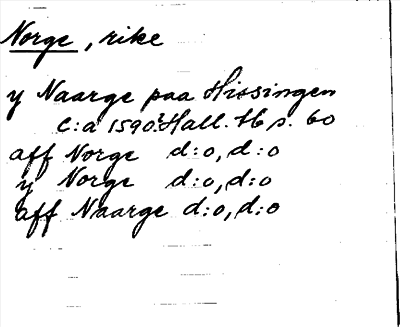 Norge, rike
y Naarge paa Hissingen
c:a 1590. Hall. H s. 60
aff Norge d:o, d:o
y Norge d:o, d:o
aff Naarge d:o, d:o